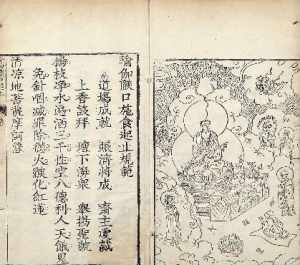 瑜伽燄口施食起止規範
道場成就 賑濟將成 齋主虔誠
上香設拜 壇下海眾 舉揚聖號
楊枝淨水徧洒三千性空八德利人天餓鬼
免針咽滅罪除愆火燄化紅蓮
清凉地菩薩摩訶薩